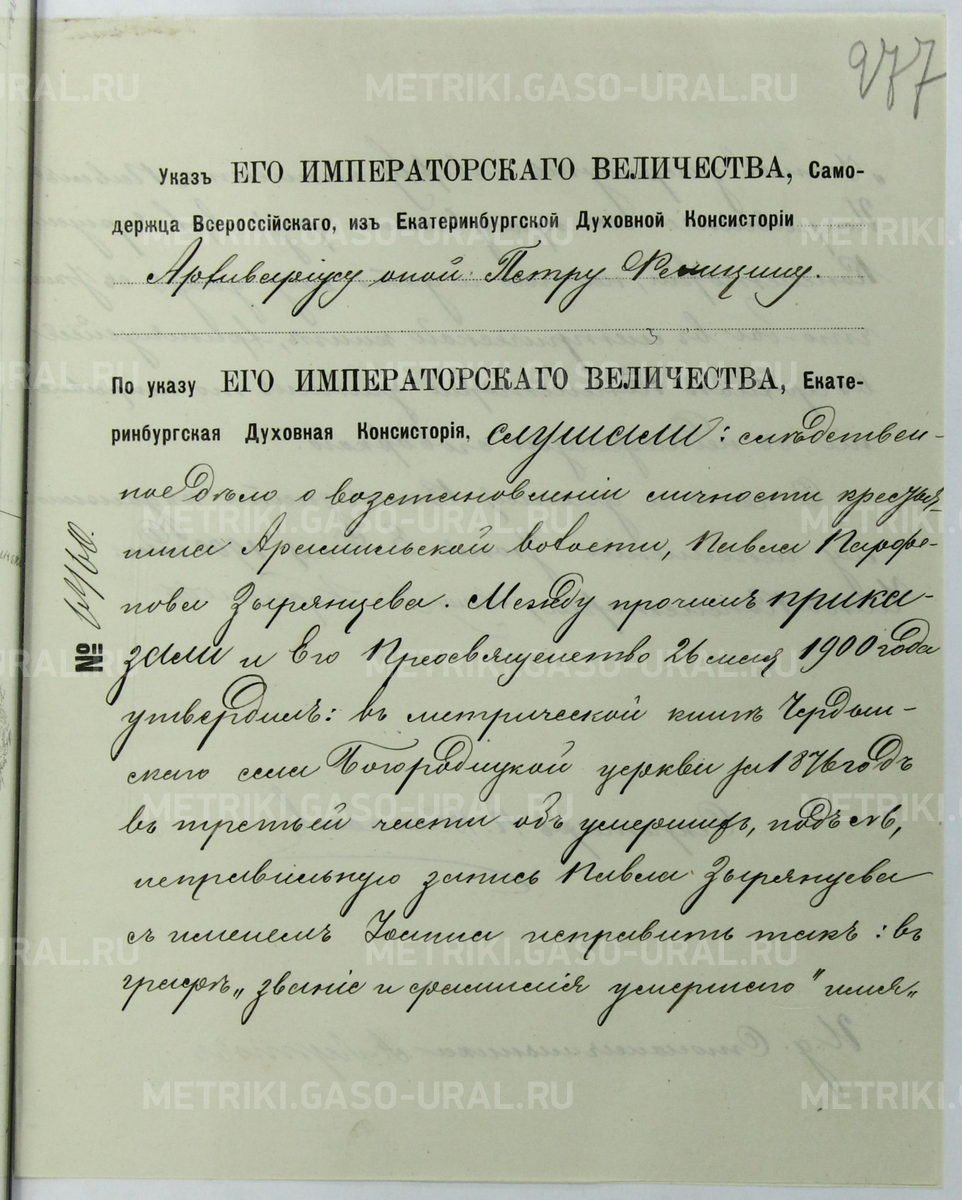 277
Указъ ЕГО ИМПЕРАТОРСКАГО ВЕЛИЧЕСТВА, Само-
держца Всероссійскаго, изъ Екатеринбургской Духовной Консисторіи
Архиваріусу оной Петру
По указу ЕГО ИМПЕРАТОРСКАГО ВЕЛИЧЕСТВА, Екате-
ринбургская Духовная Консисторія, слушали: слѣдствен-
ное дѣло о возстановленіи личности крестья-
нина Арамильской волости, Павла Парфе-
нова Зырянцева. Между прочимъ прика-
зали и Его Преосвященство 26 мая 1900 года
утвердилъ: въ метрической книгѣ
скаго села Богородицкой церкви за 1876 годъ
въ третьей части объ умершихъ, подъ
неправильную запись Павла Зырянцева
съ именемъ Іоанна исправить такъ: въ
графѣ „званіе и фамилія умершаго" имя„
№
METRIKI.GASO-URAL.RU